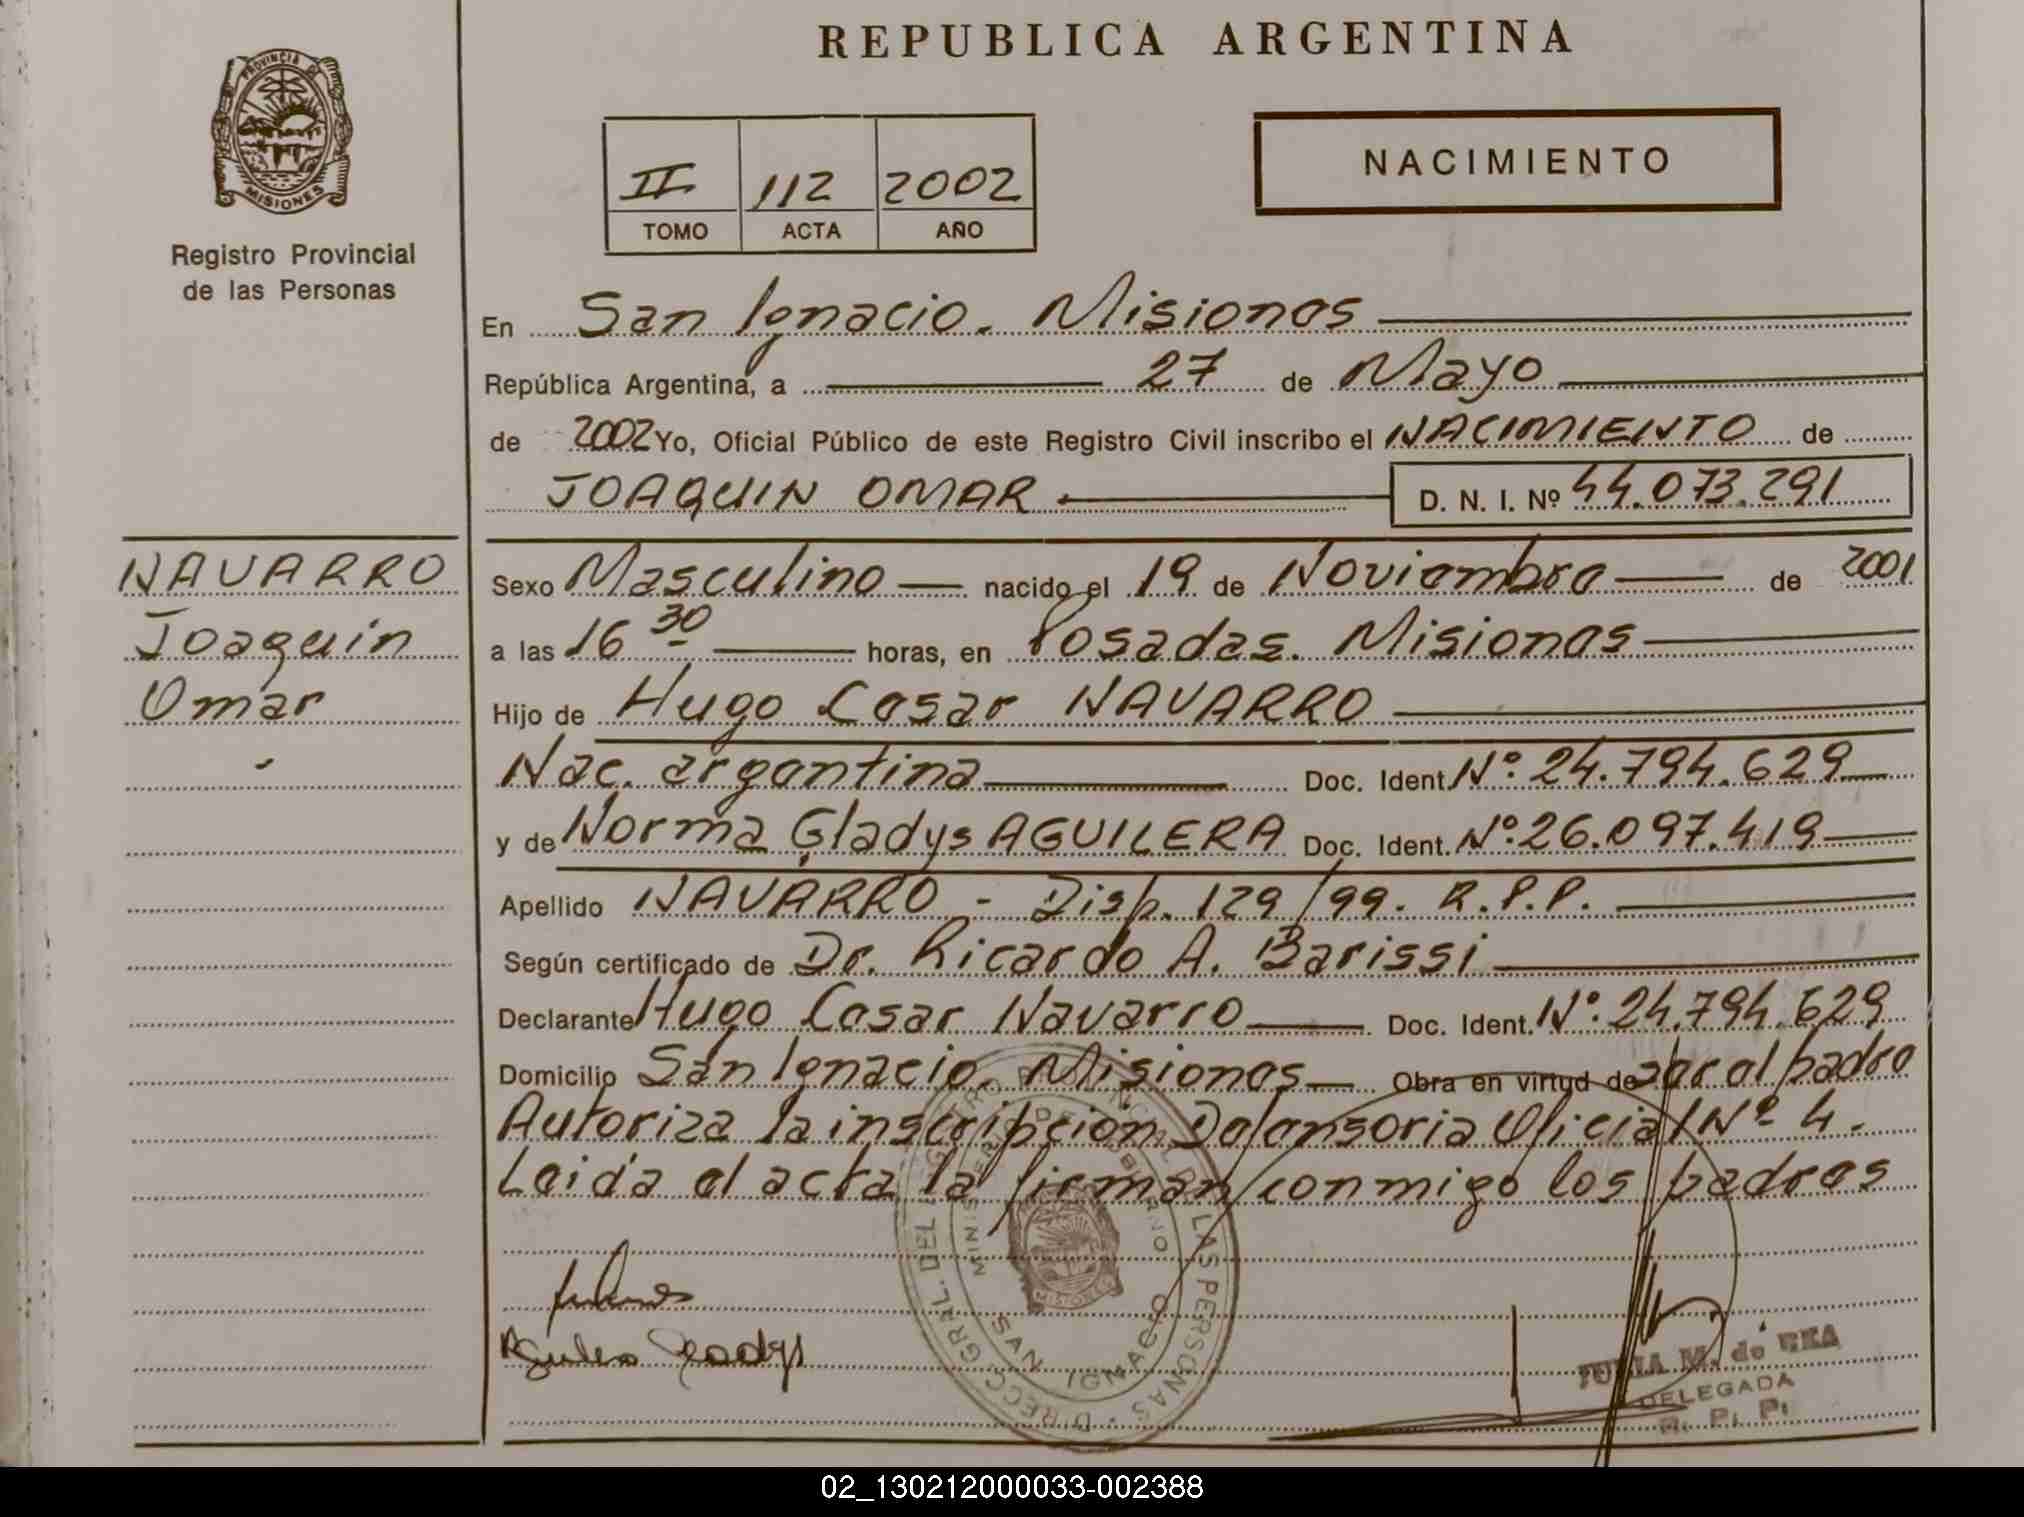 REPUBLICA ARGENTINA
PROVINCIA DE
MISIONES
Registro Provincial
de las Personas
II 112 2002
TOMO ACTA AÑO
NACIMIENTO
En San Ignacio. Misiones
República Argentina, a 27 de Mayo
de 2002 Yo, Oficial Público de este Registro Civil inscribo el NACIMIENTO de
JOAQUIN OMAR D. N. I. Nº 44.073.291
NAVARRO
Joaquin
Omar
Sexo Masculino nacido el 19 de Noviembre de 2001
a las 16 30 horas, en Posadas. Misiones
Hijo de Hugo Cesar NAVARRO
Nac. argentina Doc. Ident. Nº: 24.794.629
y de Norma Gladys AGUILERA Doc. Ident. Nº: 26.097.419
Apellido NAVARRO - Disp. 129/99. R.P.P.
Según certificado de Dr. Ricardo A. Barissi
Declarante Hugo Cesar Navarro Doc. Ident. Nº: 24.794.629
Domicilio San Ignacio. Misiones Obra en virtud de ser el padre
Autoriza la inscripción Defensoria Oficial Nº 4.
Leida el acta la firman conmigo los padres
DIRECC. GRAL. DEL REGISTRO PROVINCIAL DE LAS PERSONAS
MINISTERIO DE GOBIERNO
MISIONES
SAN IGNACIO
Gladys
M. de
DELEGADA
R. P. P.
02_130212000033-002388